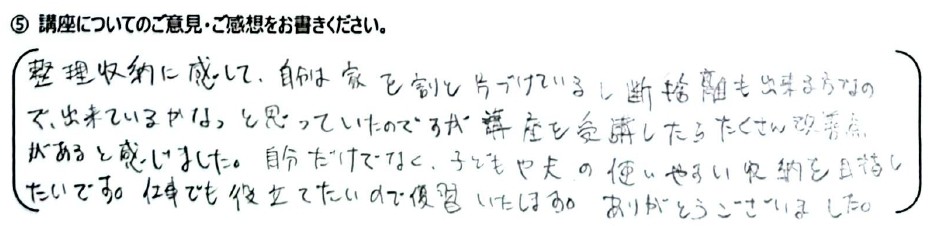 ⑤ 講座についてのご意見・ご感想をお書きください。
整理収納に感して、自分は家を割と片づけているし断捨離も出来る方なの
で、出来ているかなっと思っていたのですが講座を受講したらたくさん改善点
があると感じました。自分だけでなく、子どもや夫の使いやすい収納を目指し
たいです。仕事でも役立てたいので復習いたします。ありがとうございました。